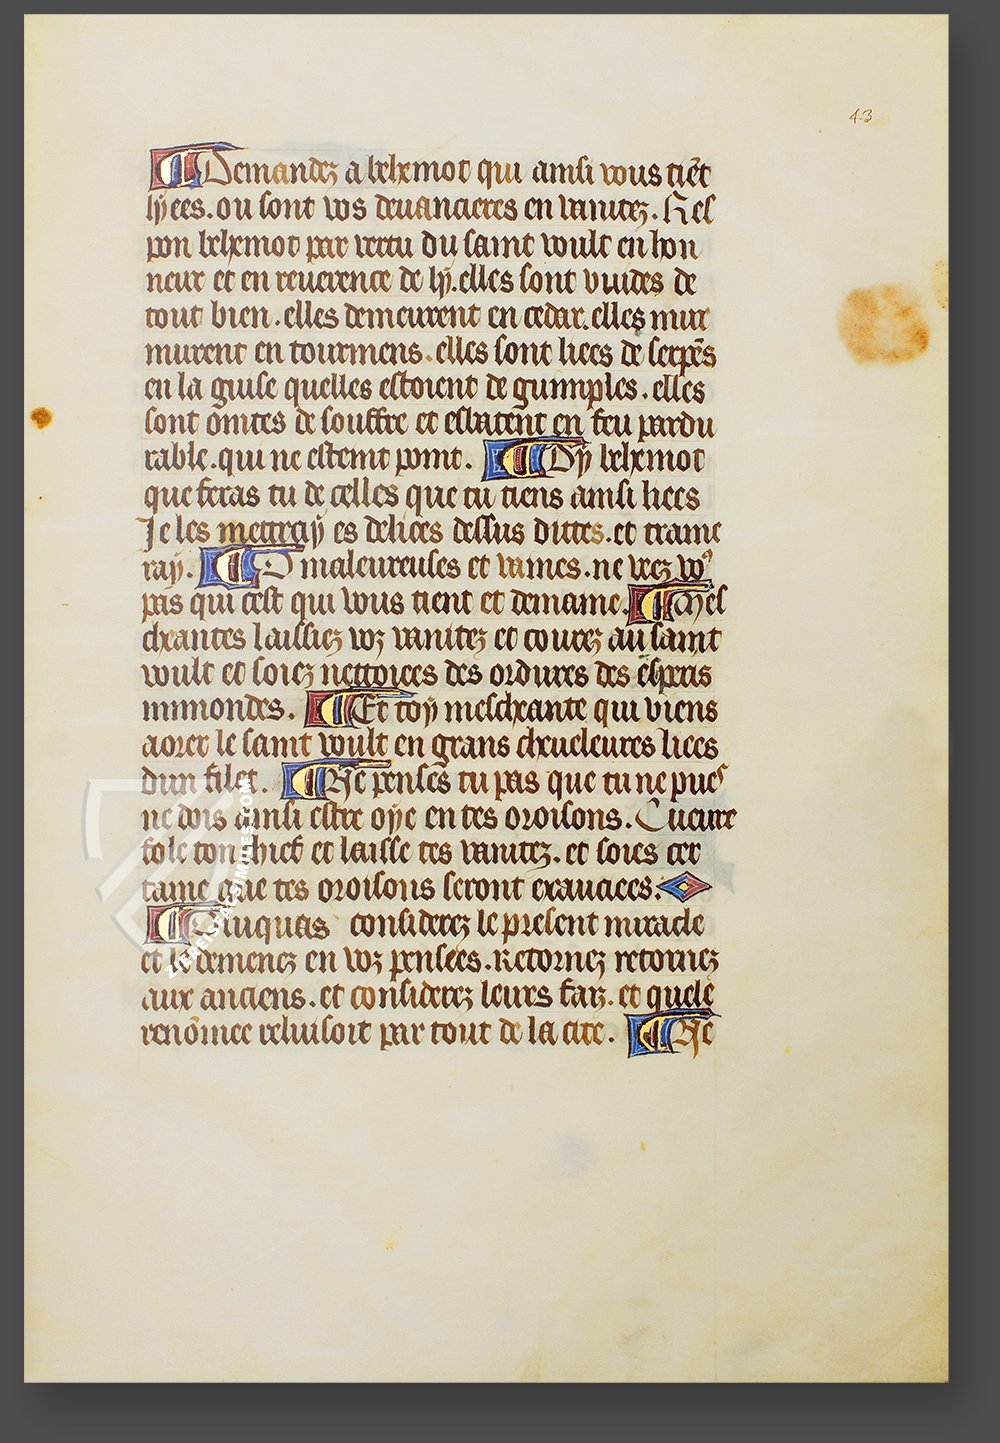 43
¶ Demandez a behemot qui ainsi vous tiēt
lÿees. ou sont vos deuancieres en vanitez. Res
pon behemot par vertu du saint voult en hon
neur et en reuerence de lÿ. elles sont vuides de
tout bien. elles demeurent en cedar. elles mur
murent en tourmens. elles sont liees de serpēs
en la guise quelles estoient de guimples. elles
sont ōintes de souffre et eslatent en feu pardu
rable. qui ne esteint point. ¶ Dÿ behemot
que feras tu de celles que tu tiens ainsi liees
Je les mettraÿ es delices dessus dittes. et traine
raÿ. ¶ O maleureuses et vaines. ne veez vo9
pas qui cest qui vous tient et demaine. ¶ Mes
cheantes laissiez voz vanitez et courez au saint
voult et soiez nettoiees des ordures des esperis
inmondes. ¶ Et toÿ mescheante qui viens
aorer le saint voult en grans cheueleures liees
dun filet. ¶ Ne penses tu pas que tu ne pues
ne dois ainsi estre oÿe en tes oroisons. Cueure
fole ton chief et laisse tes vanitez. et soies cer
taine que tes oroisons seront exaucees.
¶ Quiquas considerez le present miracle
et le demenez en voz pensees. Retornez retornez
aux anciens. et considerez leurs faiz. et quele
renōmee reluisoit par tout de la cite. ¶ Ne
ZIEREIS FACSIMILES.COM